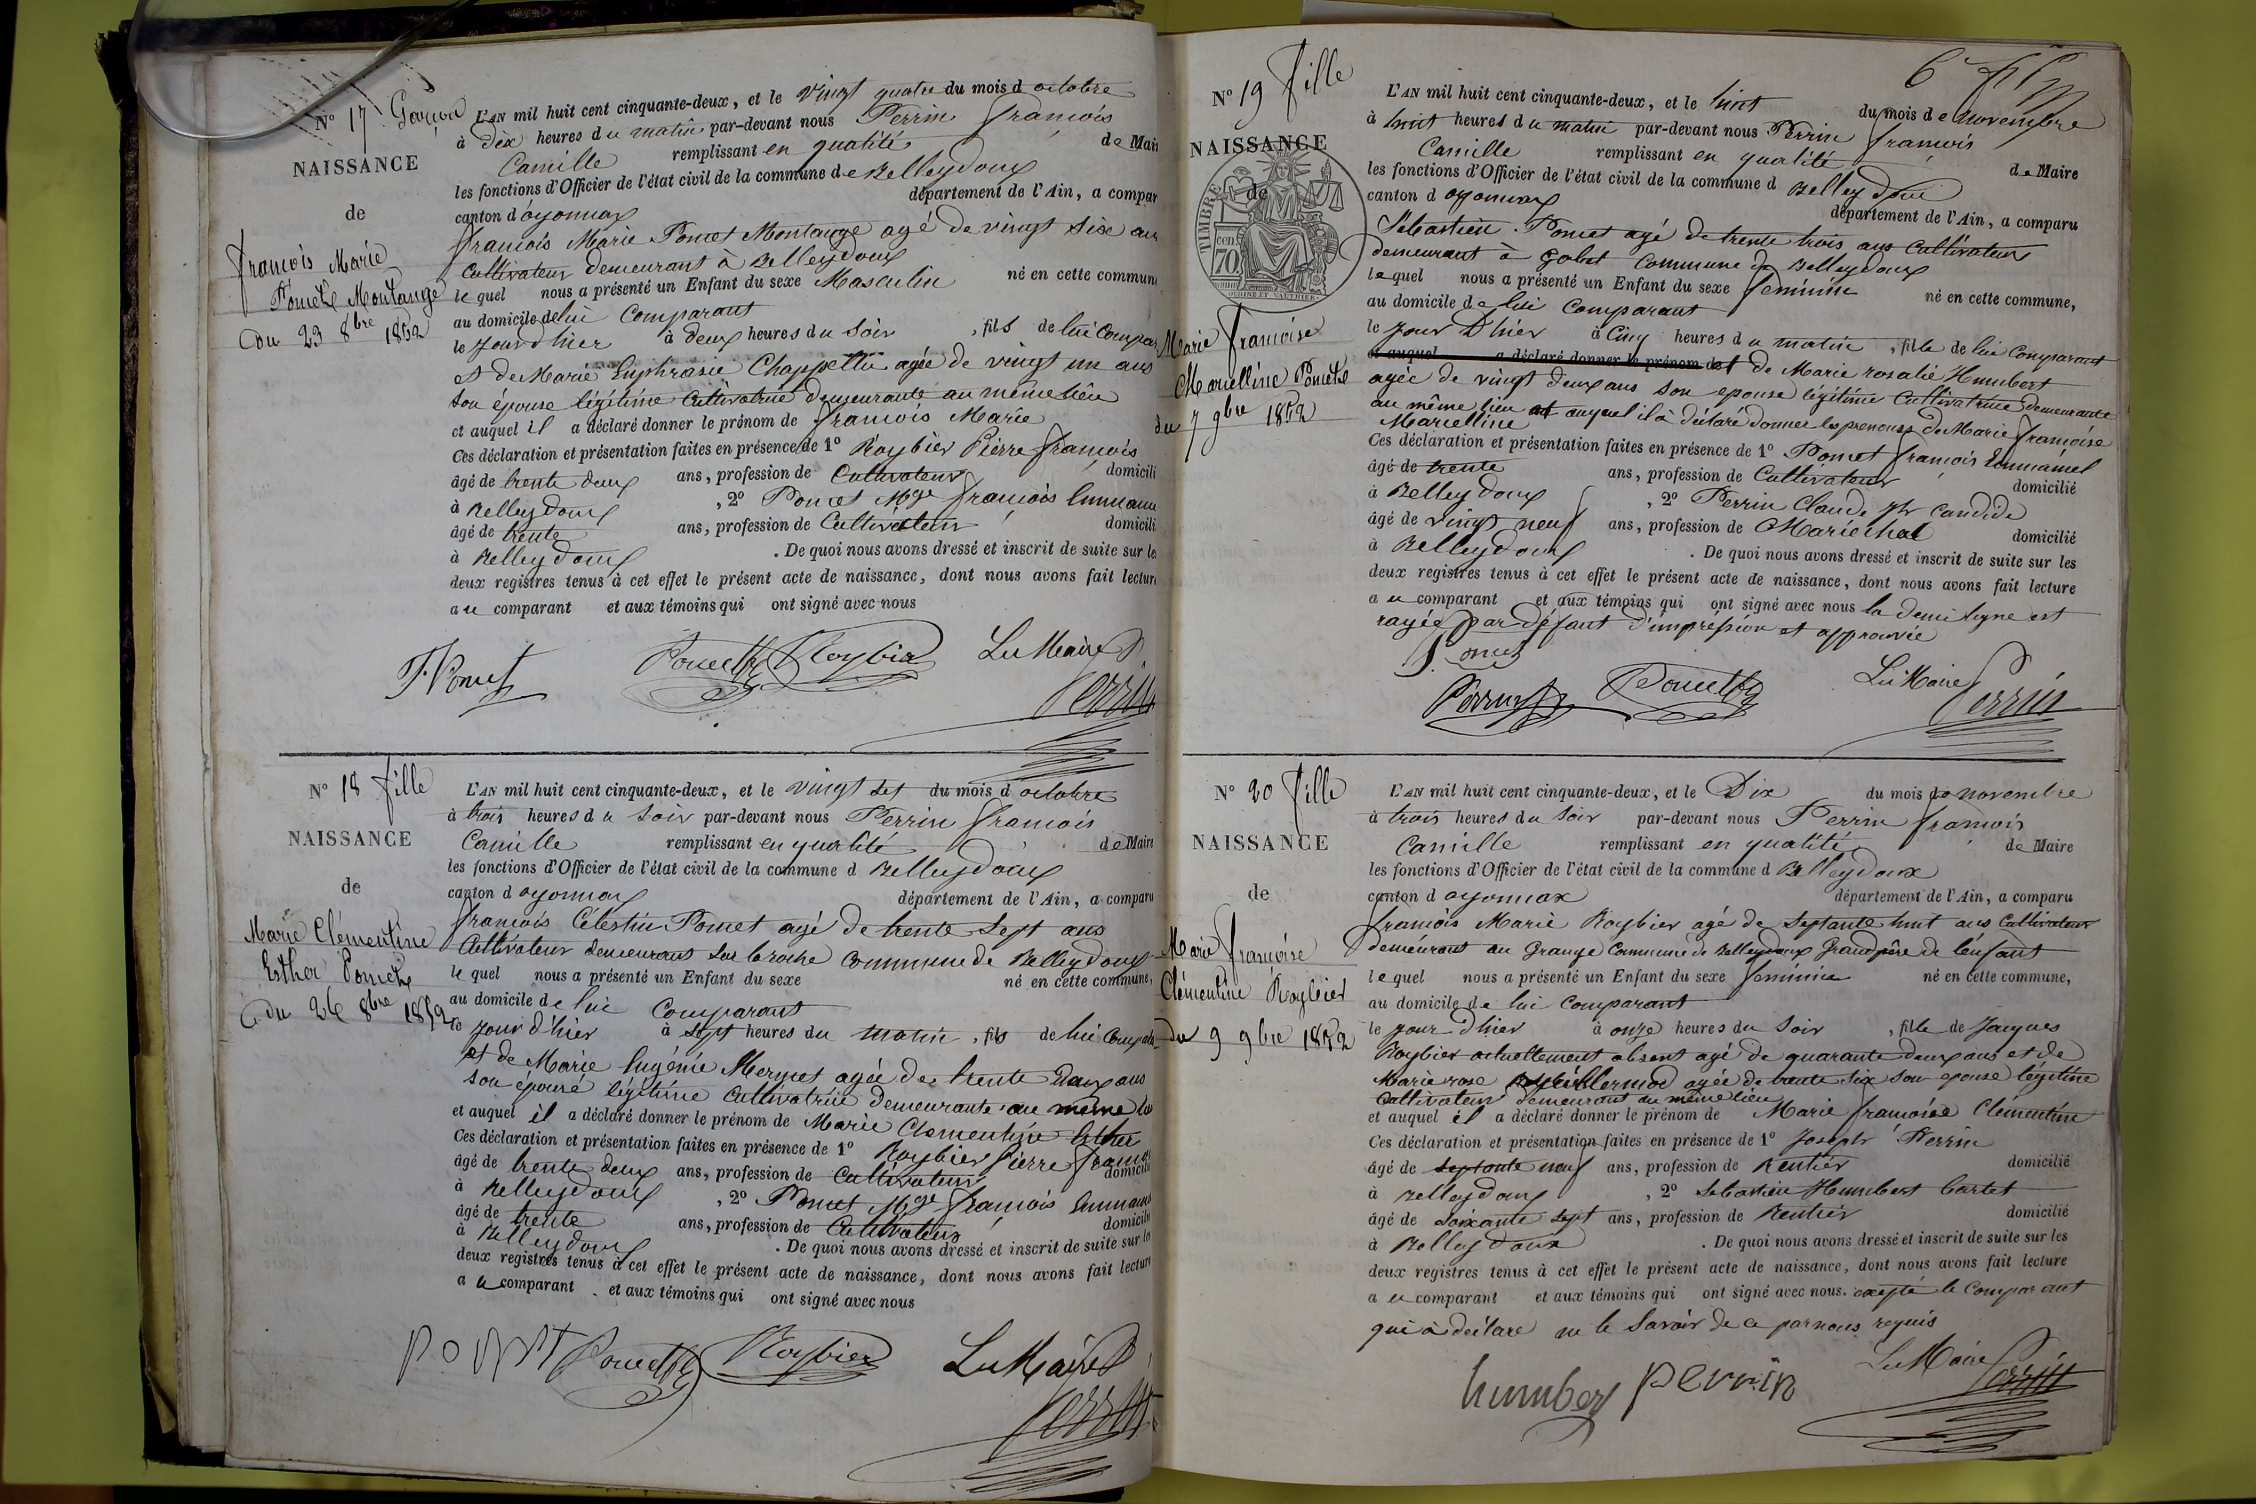 N° 17 Garçon
NAISSANCE
de
François Marie
Poncet Montange
du 23 8bre 1852
L'AN mil huit cent cinquante-deux, et le vingt quatre du mois d octobre
à dix heures du matin par-devant nous Perrin françois
Camille remplissant en qualité de Mair
les fonctions d'Officier de l'état civil de la commune de Belleydoux
canton d'oyonnax département de l'Ain, a compar
françois Marie Poncet Montange agé de vingt six ans
Cultivateur demeurant à Belleydoux
lequel nous a présenté un Enfant du sexe Masculin né en cette commun
au domicile de lui Comparant
le jour d'hier à deux heures du Soir, fils de lui Compar
et de Marie Euphrasie Chappellu agée de vingt un ans
son épouse légitime Cultivatrice demeurante au même lieu
et auquel il a déclaré donner le prénom de françois Marie
Ces déclaration et présentation faites en présence de 1° Roybier Pierre françois
âgé de trente deux ans, profession de Cultivateur domicili
à Belleydoux, 2° Poncet Mge françois Emmanu
âgé de trente ans, profession de Cultivateur domicili
à Belleydoux. De quoi nous avons dressé et inscrit de suite sur le
deux registres tenus à cet effet le présent acte de naissance, dont nous avons fait lectur
au comparant et aux témoins qui ont signé avec nous
F. Poncet Roybier Le Maire
Perrin
N° 18 fille
NAISSANCE
de
Marie Clémentine
Esther Poncet
du 26 8bre 1852
L'AN mil huit cent cinquante-deux, et le vingt sept du mois d octobre
à trois heures du soir par-devant nous Perrin françois
Camille remplissant en qualité de Maire
les fonctions d'Officier de l'état civil de la commune d Belleydoux
canton d oyonnax département de l'Ain, a comparu
françois Célestin Poncet agé de trente sept ans
Cultivateur demeurant sur la roche commune de Belleydoux
lequel nous a présenté un Enfant du sexe né en cette commune,
au domicile de lui Comparant
le jour d'hier à sept heures du matin, fils de lui Compar
et de Marie Eugénie Mermet agée de trente deux ans
son épouse légitime Cultivatrice demeurante au même lieu
et auquel il a déclaré donner le prénom de Marie Clementine Esther
Ces déclaration et présentation faites en présence de 1° Roybier Pierre françois
âgé de trente deux ans, profession de Cultivateur domicili
à Belleydoux, 2° Poncet Mge françois Emmanu
âgé de trente ans, profession de Cultivateur domicili
à Belleydoux. De quoi nous avons dressé et inscrit de suite sur les
deux registres tenus à cet effet le présent acte de naissance, dont nous avons fait lectur
au comparant et aux témoins qui ont signé avec nous
poncet Roybier Le Maire
Perrin
N° 19 fille
NAISSANCE
de
TIMBRE
cen 70
Marie françoise
Marcelline Poncet
du 7 9bre 1852
L'AN mil huit cent cinquante-deux, et le huit du mois de novembre
à huit heures du matin par-devant nous Perrin françois
Camille remplissant en qualité de Maire
les fonctions d'Officier de l'état civil de la commune d Belleydoux
canton d oyonnax département de l'Ain, a comparu
Sébastien Poncet agé de trente trois ans Cultivateur
demeurant à Gobet commune de Belleydoux
lequel nous a présenté un Enfant du sexe féminin né en cette commune,
au domicile de lui Comparant
le jour d'hier à Cinq heures du matin, fille de lui Comparant
et auquel a déclaré donner le prénom de et de Marie rosalie Humbert
agée de vingt deux ans son epouse légitime Cultivatrice demeurante
au même lieu et auquel il à déclaré donner les prenoms de Marie françoise
Marcelline
Ces déclaration et présentation faites en présence de 1° Poncet françois Emmanuel
âgé de trente ans, profession de Cultivateur domicilié
à Belleydoux, 2° Perrin Claude Jh Candide
âgé de vingt neuf ans, profession de Maréchal domicilié
à Belleydoux. De quoi nous avons dressé et inscrit de suite sur les
deux registres tenus à cet effet le présent acte de naissance, dont nous avons fait lecture
au comparant et aux témoins qui ont signé avec nous la demi ligne est
rayée par défaut d'impression et approuvée
S. Poncet
Perrin Le Maire Perrin
N° 20 fille
NAISSANCE
de
Marie françoise
Clémentine Roybier
du 9 9bre 1852
L'AN mil huit cent cinquante-deux, et le Dix du mois de novembre
à trois heures du soir par-devant nous Perrin françois
Camille remplissant en qualité de Maire
les fonctions d'Officier de l'état civil de la commune d Belleydoux
canton d oyonnax département de l'Ain, a comparu
françois Marie Roybier agé de septante huit ans Cultivateur
demeurant au Grange Commune de Belleydoux Grand père de l'enfant
lequel nous a présenté un Enfant du sexe féminin né en cette commune,
au domicile de lui comparant
le jour d'hier à onze heures du soir, fille de Jacques
Roybier actuellement absent agé de quarante deux ans et de
Marie rose agée de trente six son epouse légitime
Cultivateur demeurant au même lieu
et auquel il a déclaré donner le prénom de Marie françoise Clémentine
Ces déclaration et présentation faites en présence de 1° Joseph Perrin
âgé de septante neuf ans, profession de Rentier domicilié
à Belleydoux, 2° Sebastien Humbert Cartet
âgé de soixante sept ans, profession de Rentier domicilié
à Belleydoux. De quoi nous avons dressé et inscrit de suite sur les
deux registres tenus à cet effet le présent acte de naissance, dont nous avons fait lecture
au comparant et aux témoins qui ont signé avec nous. excepté le Comparant
qui à déclaré ne le savoir de ce par nous requis
Le Maire
humber perrin Perrin